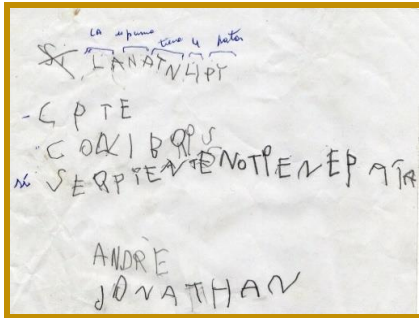 LA iguana tiene 4 patas
SI LANATNLIPT
- CPTE
- COLIBRIS
si SERPIENTENOTIENEPATA
ANDRÈ
JONATHAN